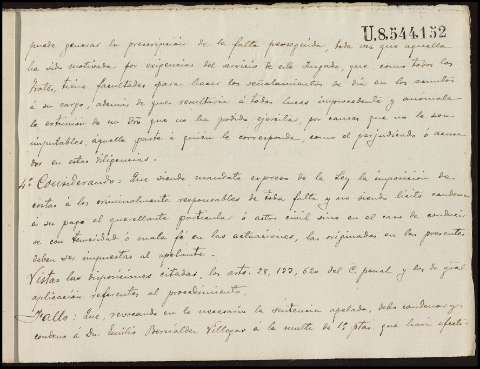 U.8.544.152
puede generar la prescripción de la falta perseguida, toda vez que aquella
ha sido motivada por exigencias del servicio de este Juzgado, que como todos los
tiene facultades para hacer los señalamientos de dia en los asuntos
á su cargo, además de que resultaria á todas luces improcedente y anomala
la extinción de un dro que no ha podido ejercitar, por causas que no le son
imputables, aquella parte á quien le corresponde, como el perjudicado ó
dor en estas diligencias.
4º Considerando: Que siendo mandato expreso de la Ley la imposición de
costas á los criminalmente responsables de toda falta y no siendo licito condenar
á su pago al querellante particular ó actor civil sino en el caso de conducir
se con temeridad ó mala fé en las actuaciones, las originadas en las presentes
deben ser impuestas al apelante.
Vistas las disposiciones citadas, los arts. 28, 620 del C. penal y los de gral
aplicación referentes al procedimiento.
Fallo: Que, revocando en lo necesario la sentencia apelada, debo condenar y
condeno á Dn. Emilio Villegas á la multa de ptas. que hará efecti-